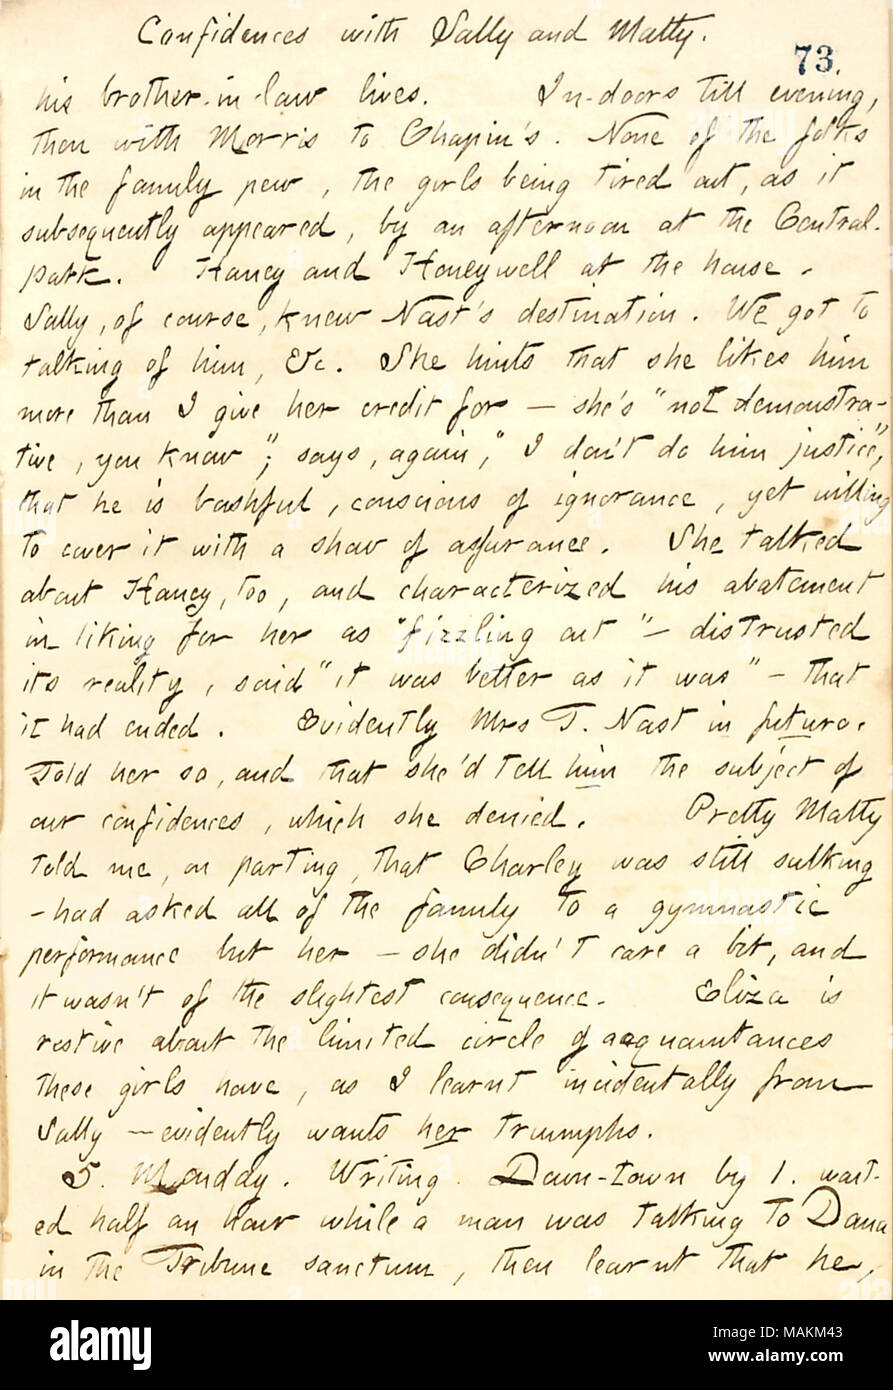 Confidences with Sally and Matty.
73.
his brother-in-law lives. In-doors till evening,
then with Morris to Chapin's. None of the folks
in the family pew, the girls being tired out, as it
subsequently appeared, by an afternoon at the Central-
park. Haney and Honeywell at the house.
Sally, of course, knew Nast's destination. We got to
talking of him, &c. She hints that she likes him
more than I give her credit for — she's "not demonstra-
tive, you know"; says, again, "I don't do him justice",
that he is bashful, conscious of ignorance, yet willing
to cover it with a show of assurance. She talked
about Haney, too, and characterized his abatement
in liking for her as "fizzling out" — distrusted
its reality, said "it was better as it was" — that
it had ended. Evidently Mrs T. Nast in futuro.
Told her so, and that she'd tell him the subject of
our confidences, which she denied. Pretty Matty
told me, on parting, that Charley was still sulking
— had asked all of the family to a gymnastic
performance but her — she didn't care a bit, and
it wasn't of the slightest consequence. Eliza is
restive about the limited circle of acquaintances
these girls have, as I learnt incidentally from
Sally — evidently wants her triumphs.
5. Monday. Writing. Down-town by 1. wait-
ed half an hour while a man was talking to Dana
in the Tribune sanctum, then learnt that he,
alamy
Image ID: MAKM43
www.alamy.com